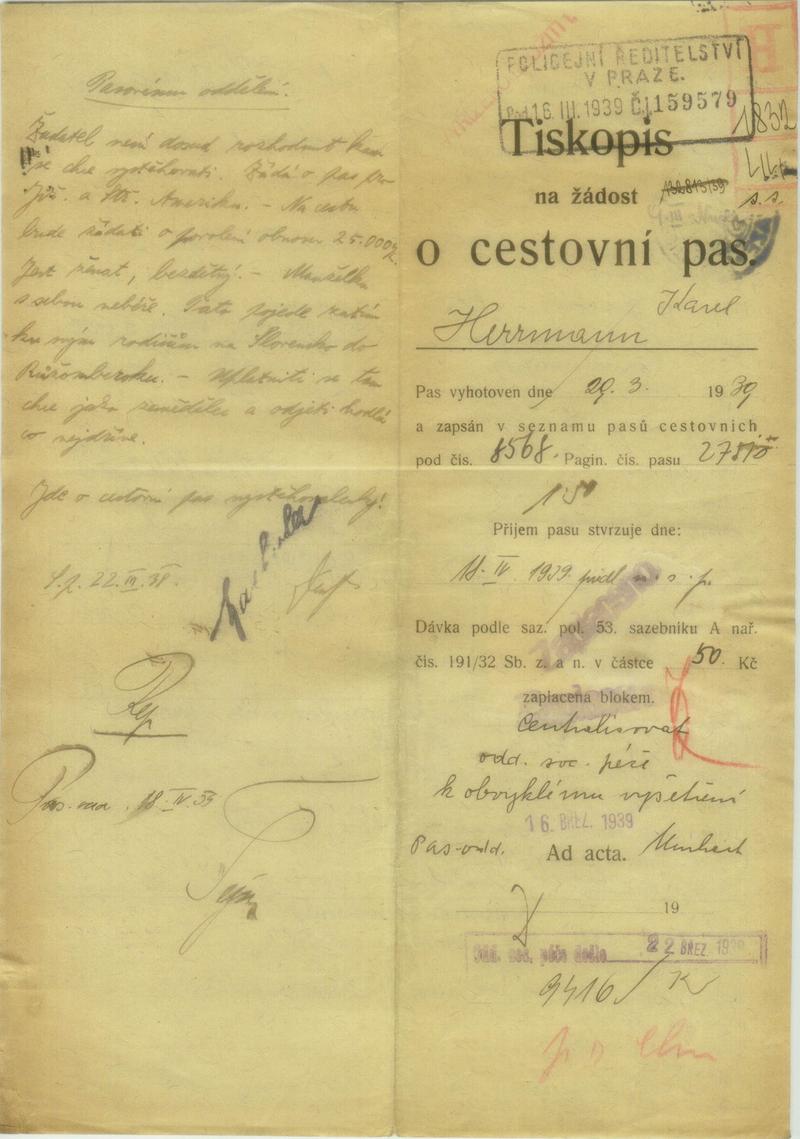 Pasovému oddělení.
Žadatel není dosud rozhodnut kam
se chce vystěhovati. Žádá o pas pro
Již. a Stř. Ameriku. – Na cestu
bude žádati o povolení obnosu 25.000 K.
Jest ženat, bezdětný. – Manželku
s sebou nebéře. Tato pojede zatím
ku svým rodičům na Slovensko do
Ružomberoku. – Uplatniti se tam
chce jako zemědělec a odjeti hodlá
co nejdříve.
Jde o cestovní pas vystěhovalecký!
22. III. 38.
18. IV. 39
POLICEJNÍ ŘEDITELSTVÍ
V PRAZE.
Pod 16 III. 1939 Č.j. 159579
1832
Tiskopis
na žádost
s. s.
o cestovní pas.
Karel
Herrmann
Pas vyhotoven dne 29. 3. 1939
a zapsán v seznamu pasů cestovních
pod čis. 8568. Pagin. čis. pasu
Příjem pasu stvrzuje dne:
18. IV. 1939
Dávka podle saz. pol. 53. sazebníku A nař.
čis. 191/32 Sb. z. a n. v částce 50. Kč
zaplacena blokem.
Centralisovat
odd. soc. péče
k obvyklému vyšetření
16. BŘEZ. 1939
Pas-odd. Ad acta.
19
Odd. soc. péče došlo 22 BŘEZ. 1939
9416/K